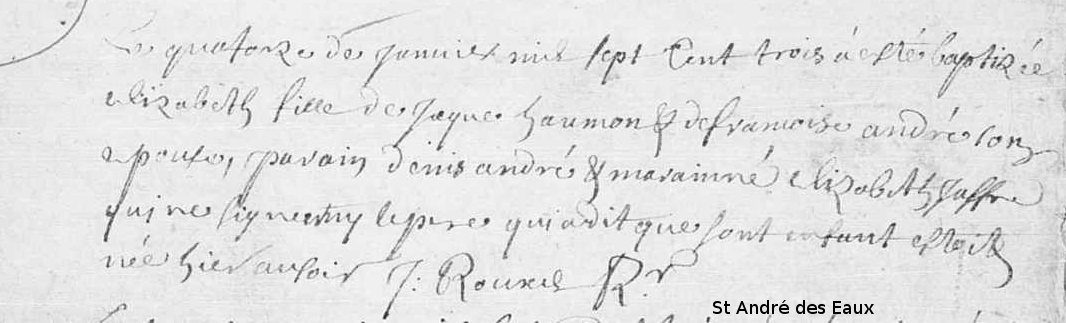 Le quatorze de janvier mil sept Cent trois à esté baptizée
elizabeth fille de Jaque haumon & de francoise andré son
epouse, parain denis andré & marainne elizabeth Jaffre
qui ne signe ny le pere qui a dit que sont enfant estoit
née hier au soir J: Rouxel Rr
St André des Eaux